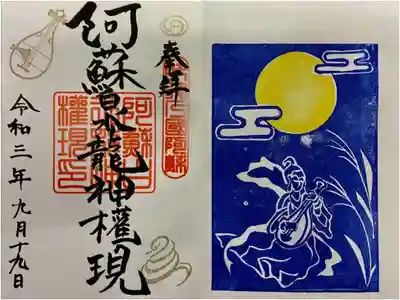 奉拝
阿蘇白水龍神權現
阿蘇白
水龍神
權現印
令和三年九月十九日